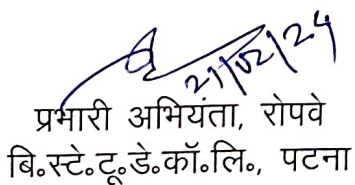 21/02/24
प्रभारी अभियंता, रोपवे
बि॰स्टे॰टू॰डे॰कॉ॰लि॰, पटना